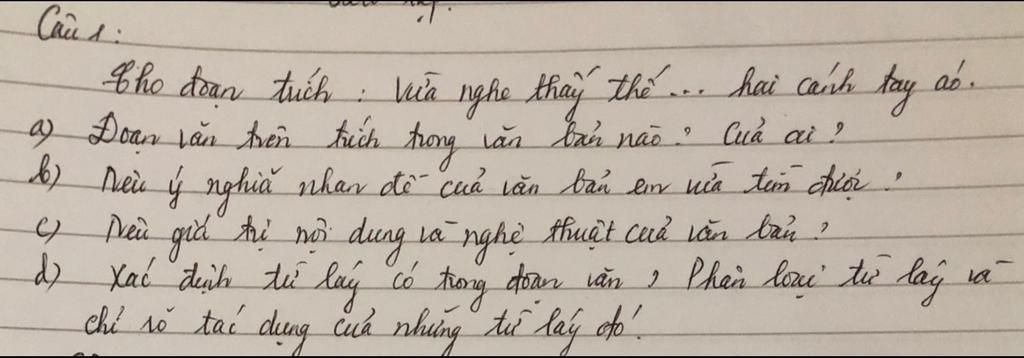 Câu 1:
Cho đoạn trích : Vừa nghe thấy thế... hai cánh tay áo.
a) Đoạn văn trên trích trong văn bản nào? Của ai?
b) Nêu ý nghĩa nhan đề của văn bản em vừa tìm được?
c) Nêu giá trị nội dung và nghệ thuật của văn bản?
d) Xác định từ láy có trong đoạn văn, Phân loại từ láy và
chỉ rõ tác dụng của những từ láy đó!